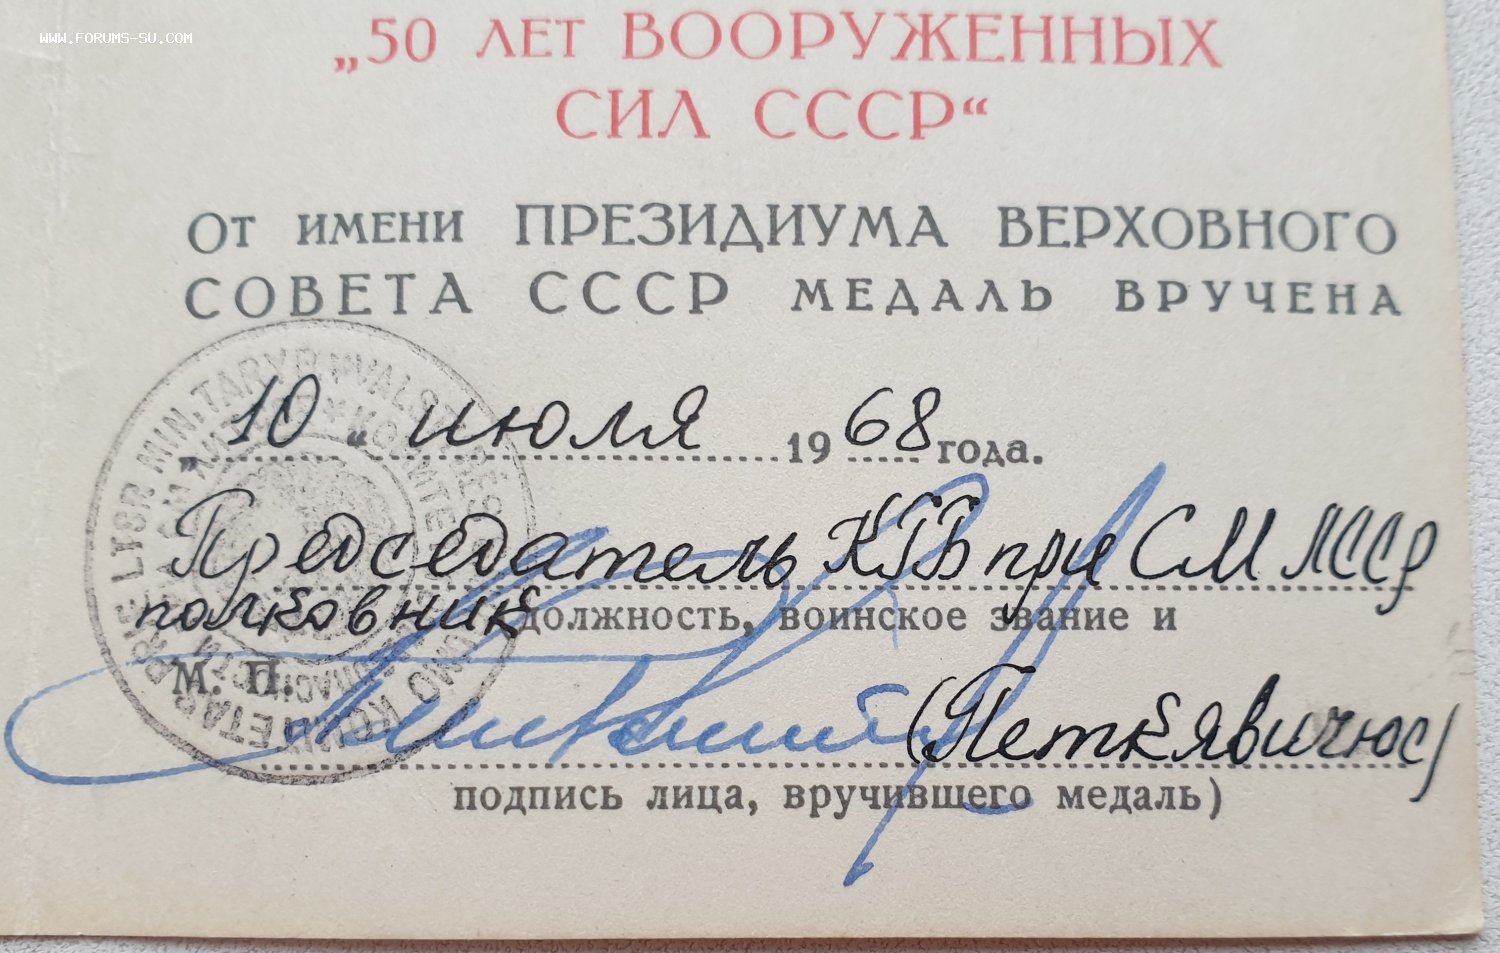 www.forums-su.com
„50 ЛЕТ ВООРУЖЕННЫХ
СИЛ СССР“
ОТ ИМЕНИ ПРЕЗИДИУМА ВЕРХОВНОГО
СОВЕТА СССР МЕДАЛЬ ВРУЧЕНА
„10“ июля 1968 года.
Председатель КГБ при СМ ЛССР
полковник должность, воинское звание и
М. П.
(Петкявичюс)
подпись лица, вручившего медаль)
PRIE LTSR MIN. TARYB VALST